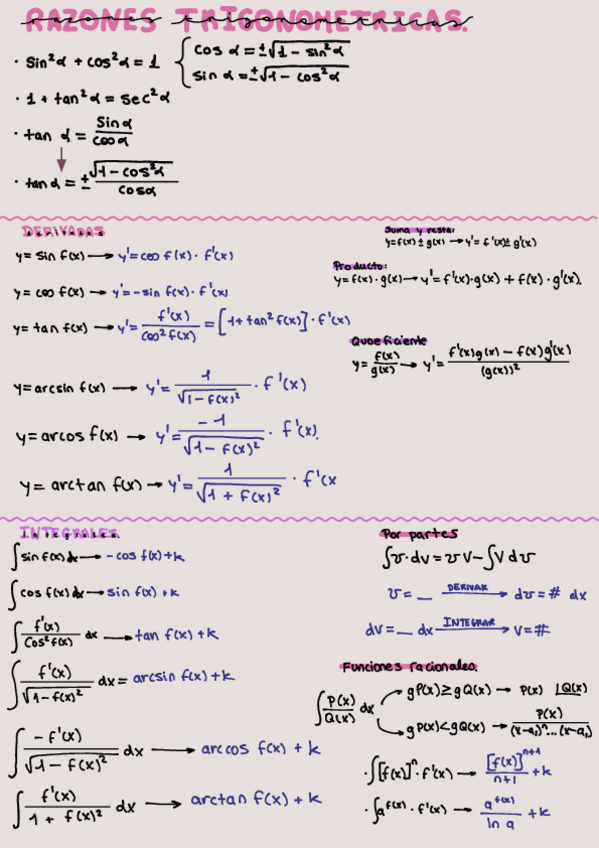 RAZONES TRIGONOMETRICAS.
· Sin²α + cos²α = 1 { cos α = ±√(1 - sin²α)
sin α = ±√(1 - cos²α)
· 1 + tan²α = sec²α
· tan α = Sinα / cosα
· tanα = ± √(1 - cos²α) / cosα
DERIVADAS
y = sin f(x) → y' = cos f(x) · f'(x)
y = cos f(x) → y' = -sin f(x) · f'(x)
y = tan f(x) → y' = f'(x) / cos² f(x) = [1 + tan² f(x)] · f'(x)
y = arcsin f(x) → y' = 1 / √(1 - f(x)²) · f'(x)
y = arcos f(x) → y' = -1 / √(1 - f(x)²) · f'(x).
y = arctan f(x) → y' = 1 / √(1 + f(x)²) · f'(x
Suma y resta:
y = f(x) ± g(x) → y' = f'(x) ± g'(x)
Producto:
y = f(x) · g(x) → y' = f'(x) · g(x) + f(x) · g'(x).
Quoeficiente
y = f(x) / g(x) → y' = f'(x)g(x) - f(x)g'(x) / (g(x))²
INTEGRALES.
∫ sin f(x) dx → - cos f(x) + k
∫ cos f(x) dx → sin f(x) + k
∫ f'(x) / Cos² f(x) dx → tan f(x) + k
∫ f'(x) / √(1 - f(x)²) dx = arcsin f(x) + k
∫ -f'(x) / √(1 - f(x)²) dx → arccos f(x) + k
∫ f'(x) / 1 + f(x)² dx → arctan f(x) + k
Por partes
∫ v · dV = v V - ∫ V dv
v = _ DERIVAR → dv = # dx
dV = _ dx INTEGRAR → V = #
Funciones racionales.
∫ P(x) / Q(x) dx
g P(x) ≥ g Q(x) → P(x) |Q(x)
g P(x) < g Q(x) → P(x) / (x-a₁)ⁿ...(x-a₁)
· ∫ [f(x)]ⁿ · f'(x) → [f(x)]ⁿ⁺¹ / n+1 + k
· ∫ a^f(x) · f'(x) → a^f(x) / ln a + k